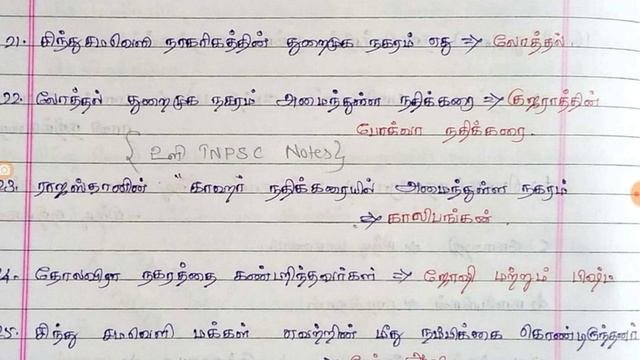 21. சிந்து சமவெளி நாகரிகத்தின் துறைமுக நகரம் எது ⇒ லோத்தல்.
22. லோத்தல் துறைமுக நகரம் அமைந்துள்ள நதிக்கரை ⇒ குஜராத்தின்
போக்வா நதிக்கரை.
{ உளி TNPSC Notes}
23. ராஜஸ்தானின் "காஹர் நதிக்கரையில் அமைந்துள்ள நகரம்
⇒ காலிபங்கன்.
24. தோலவிரா நகரத்தை கண்டறிந்தவர்கள் ⇒ ஜோஷி மற்றும் பிஷ்ட்
25. சிந்து சமவெளி மக்கள் எவற்றின் மீது நம்பிக்கை கொண்டிருந்தனர்